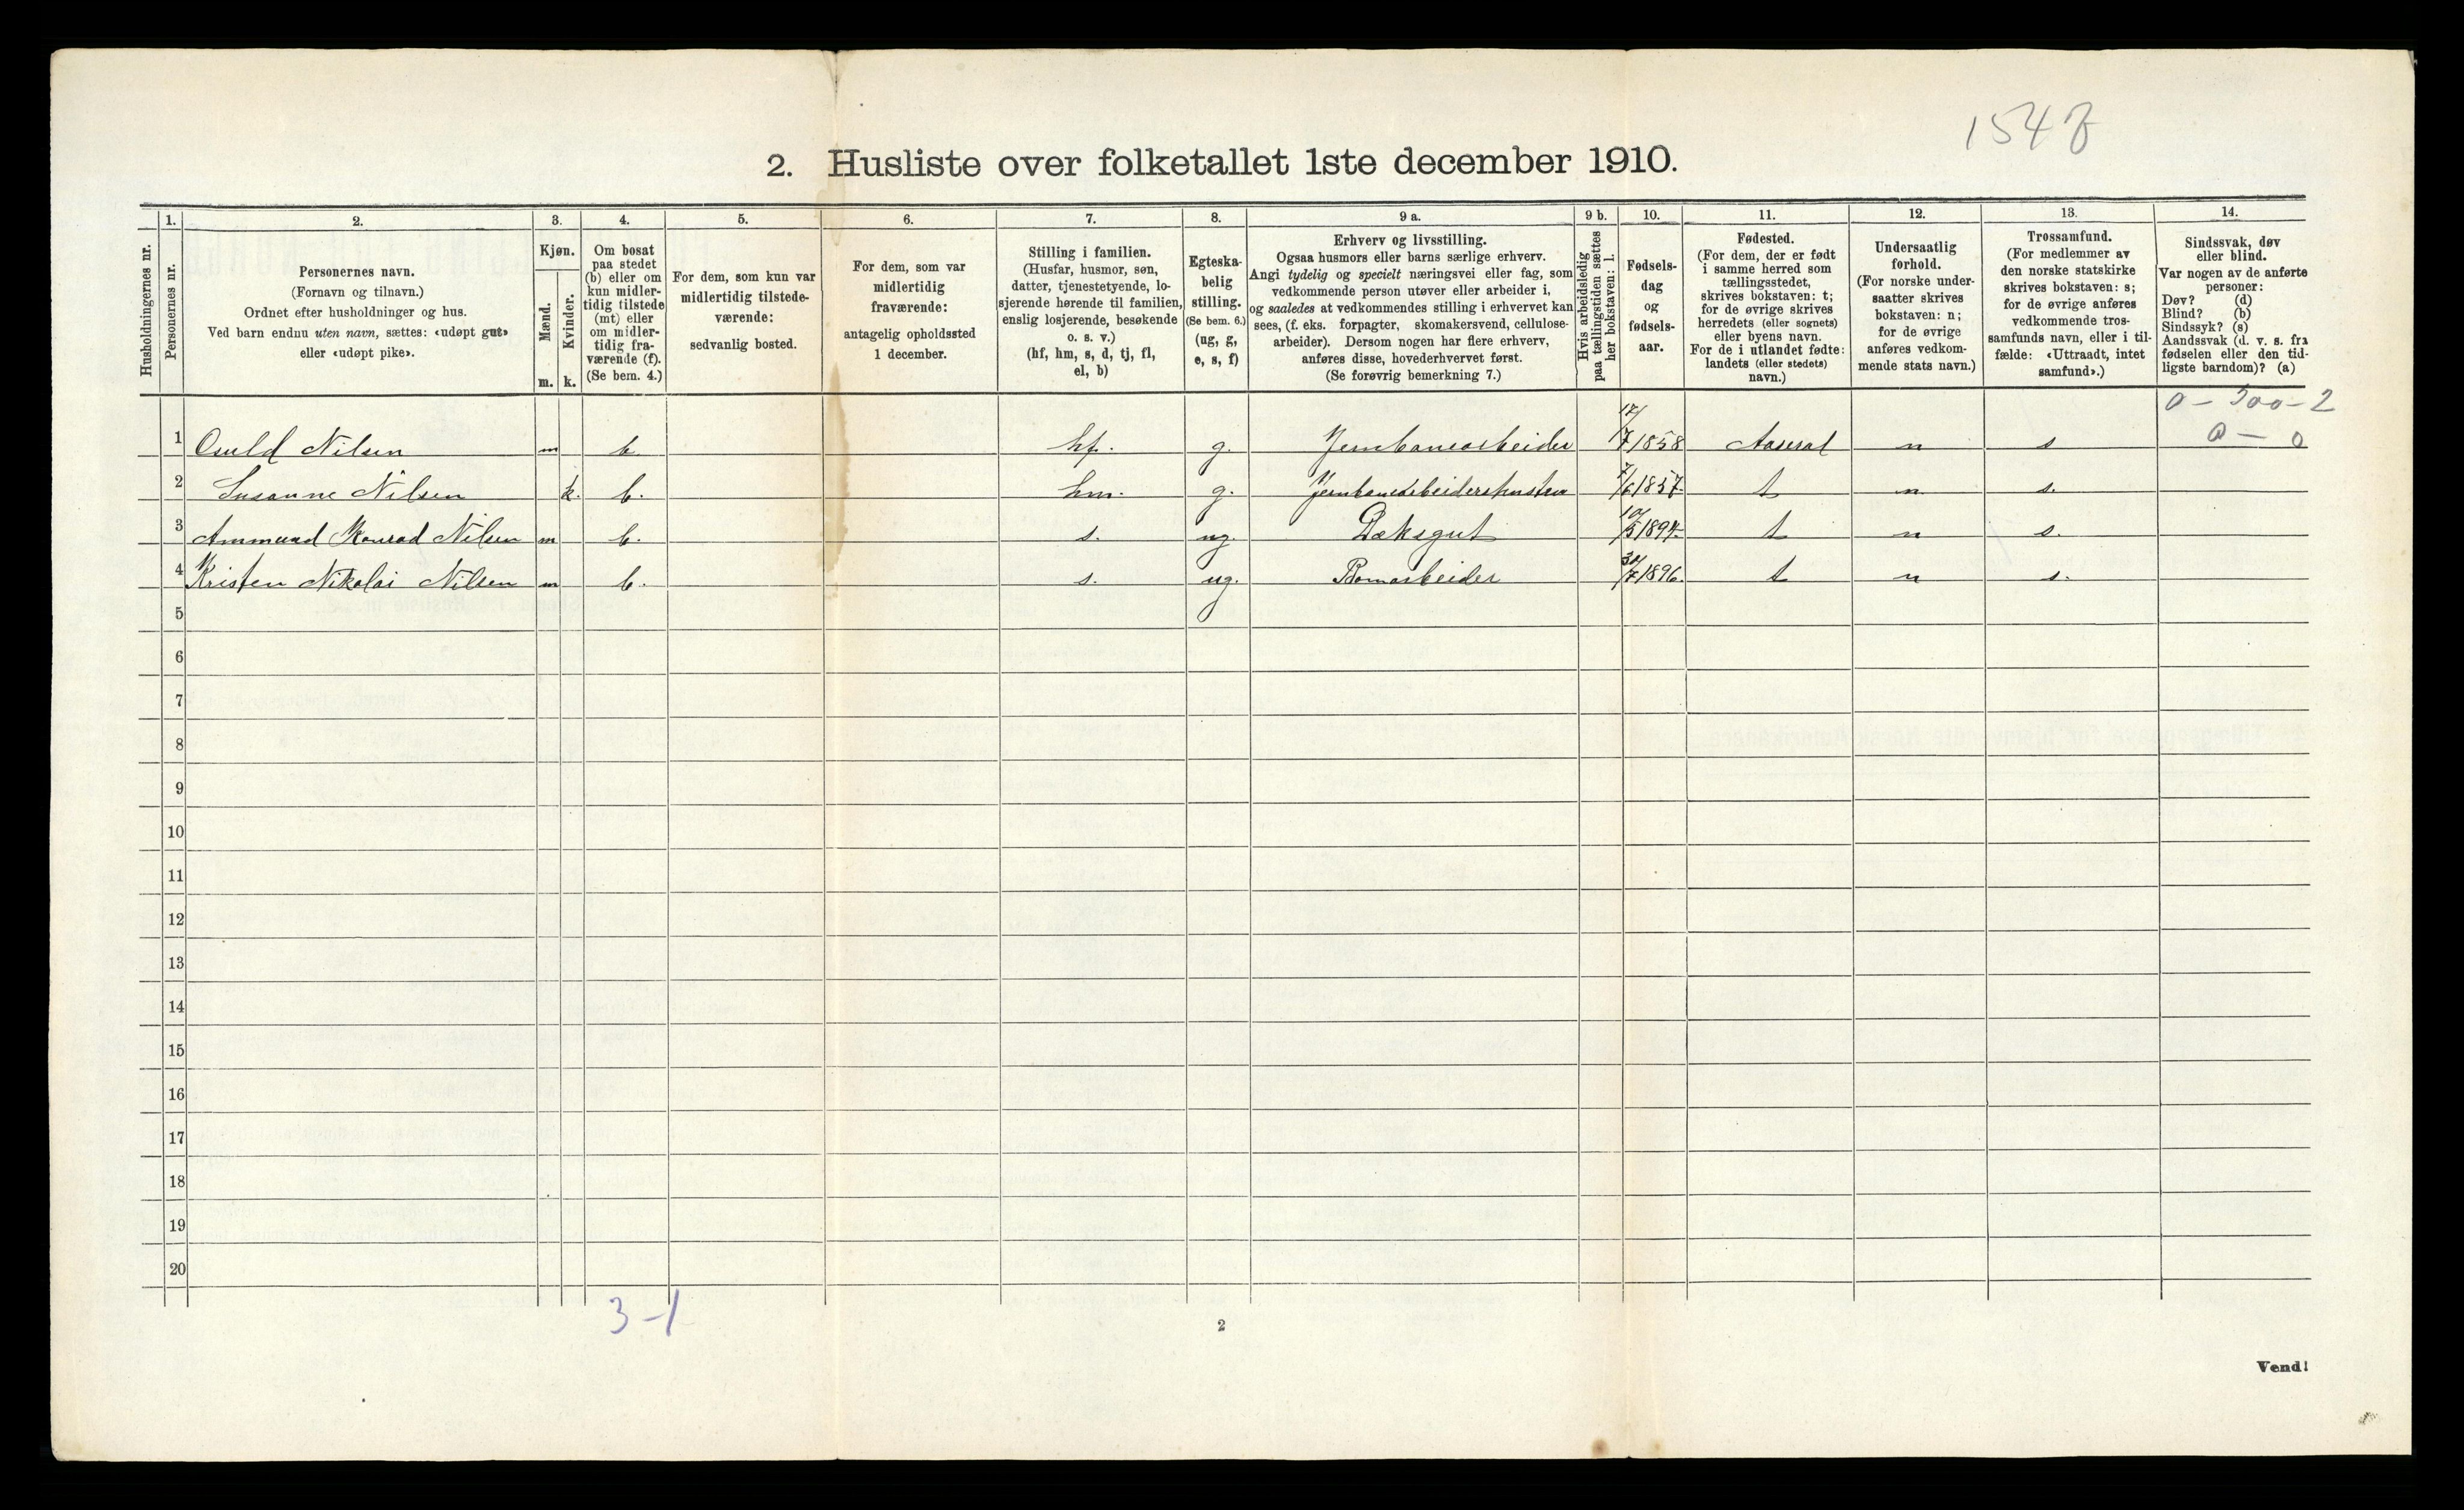 1547
2. Husliste over folketallet 1ste december 1910.
1. 2. 3. 4. 5. 6. 7. 8. 9 a. 9 b. 10. 11. 12. 13. 14.
Husholdningernes nr.
Personernes nr.
Personernes navn.
(Fornavn og tilnavn.)
Ordnet efter husholdninger og hus.
Ved barn endnu uten navn, sættes: «udøpt gut»
eller «udøpt pike».
Kjøn.
Mænd.
Kvinder.
m. k.
Om bosat
paa stedet
(b) eller om
kun midler-
tidig tilstede
(mt) eller
om midler-
tidig fra-
værende (f).
(Se bem. 4.)
For dem, som kun var
midlertidig tilstede-
værende:
sedvanlig bosted.
For dem, som var
midlertidig
fraværende:
antagelig opholdssted
1 december.
Stilling i familien.
(Husfar, husmor, søn,
datter, tjenestetyende, lo-
sjerende hørende til familien,
enslig losjerende, besøkende
o. s. v.)
(hf, hm, s, d, tj, fl,
el, b)
Egteska-
belig
stilling.
(Se bem. 6.)
(ug, g,
e, s, f)
Erhverv og livsstilling.
Ogsaa husmors eller barns særlige erhverv.
Angi tydelig og specielt næringsvei eller fag, som
vedkommende person utøver eller arbeider i,
og saaledes at vedkommendes stilling i erhvervet kan
sees, (f. eks. forpagter, skomakersvend, cellulose-
arbeider). Dersom nogen har flere erhverv,
anføres disse, hovederhvervet først.
(Se forøvrig bemerkning 7.)
Hvis arbeidsledig
paa tællingstiden sættes
her bokstaven: l.
Fødsels-
dag
og
fødsels-
aar.
Fødested.
(For dem, der er født
i samme herred som
tællingsstedet,
skrives bokstaven: t;
for de øvrige skrives
herredets (eller sognets)
eller byens navn.
For de i utlandet fødte:
landets (eller stedets)
navn.)
Undersaatlig
forhold.
(For norske under-
saatter skrives
bokstaven: n;
for de øvrige
anføres vedkom-
mende stats navn.)
Trossamfund.
(For medlemmer av
den norske statskirke
skrives bokstaven: s;
for de øvrige anføres
vedkommende tros-
samfunds navn, eller i til-
fælde: «Uttraadt, intet
samfund».)
Sindssvak, døv
eller blind.
Var nogen av de anførte
personer:
Døv? (d)
Blind? (b)
Sindssyk? (s)
Aandssvak (d. v. s. fra
fødselen eller den tid-
ligste barndom)? (a)
0 – 300 – 2
0 – 0
1 Osuld Nilsen m b hf. g. Jernbanearbeider 17/7 1858 Aaseral n s
2 Susanne Nilsen k. b. hm. g. Jernbanearbeiderhustru 7/6 1857 t n s.
3 Ammund Konrad Nilsen m b. s. ug. Dæksgut 10/5 1894 t n s.
4 Kristen Nikolai Nilsen m b. s. ug. Bomarbeider 30/7 1896. t n s.
5
6
7
8
9
10
11
12
13
14
15
16
17
18
19
20
3-1
2
Vend!